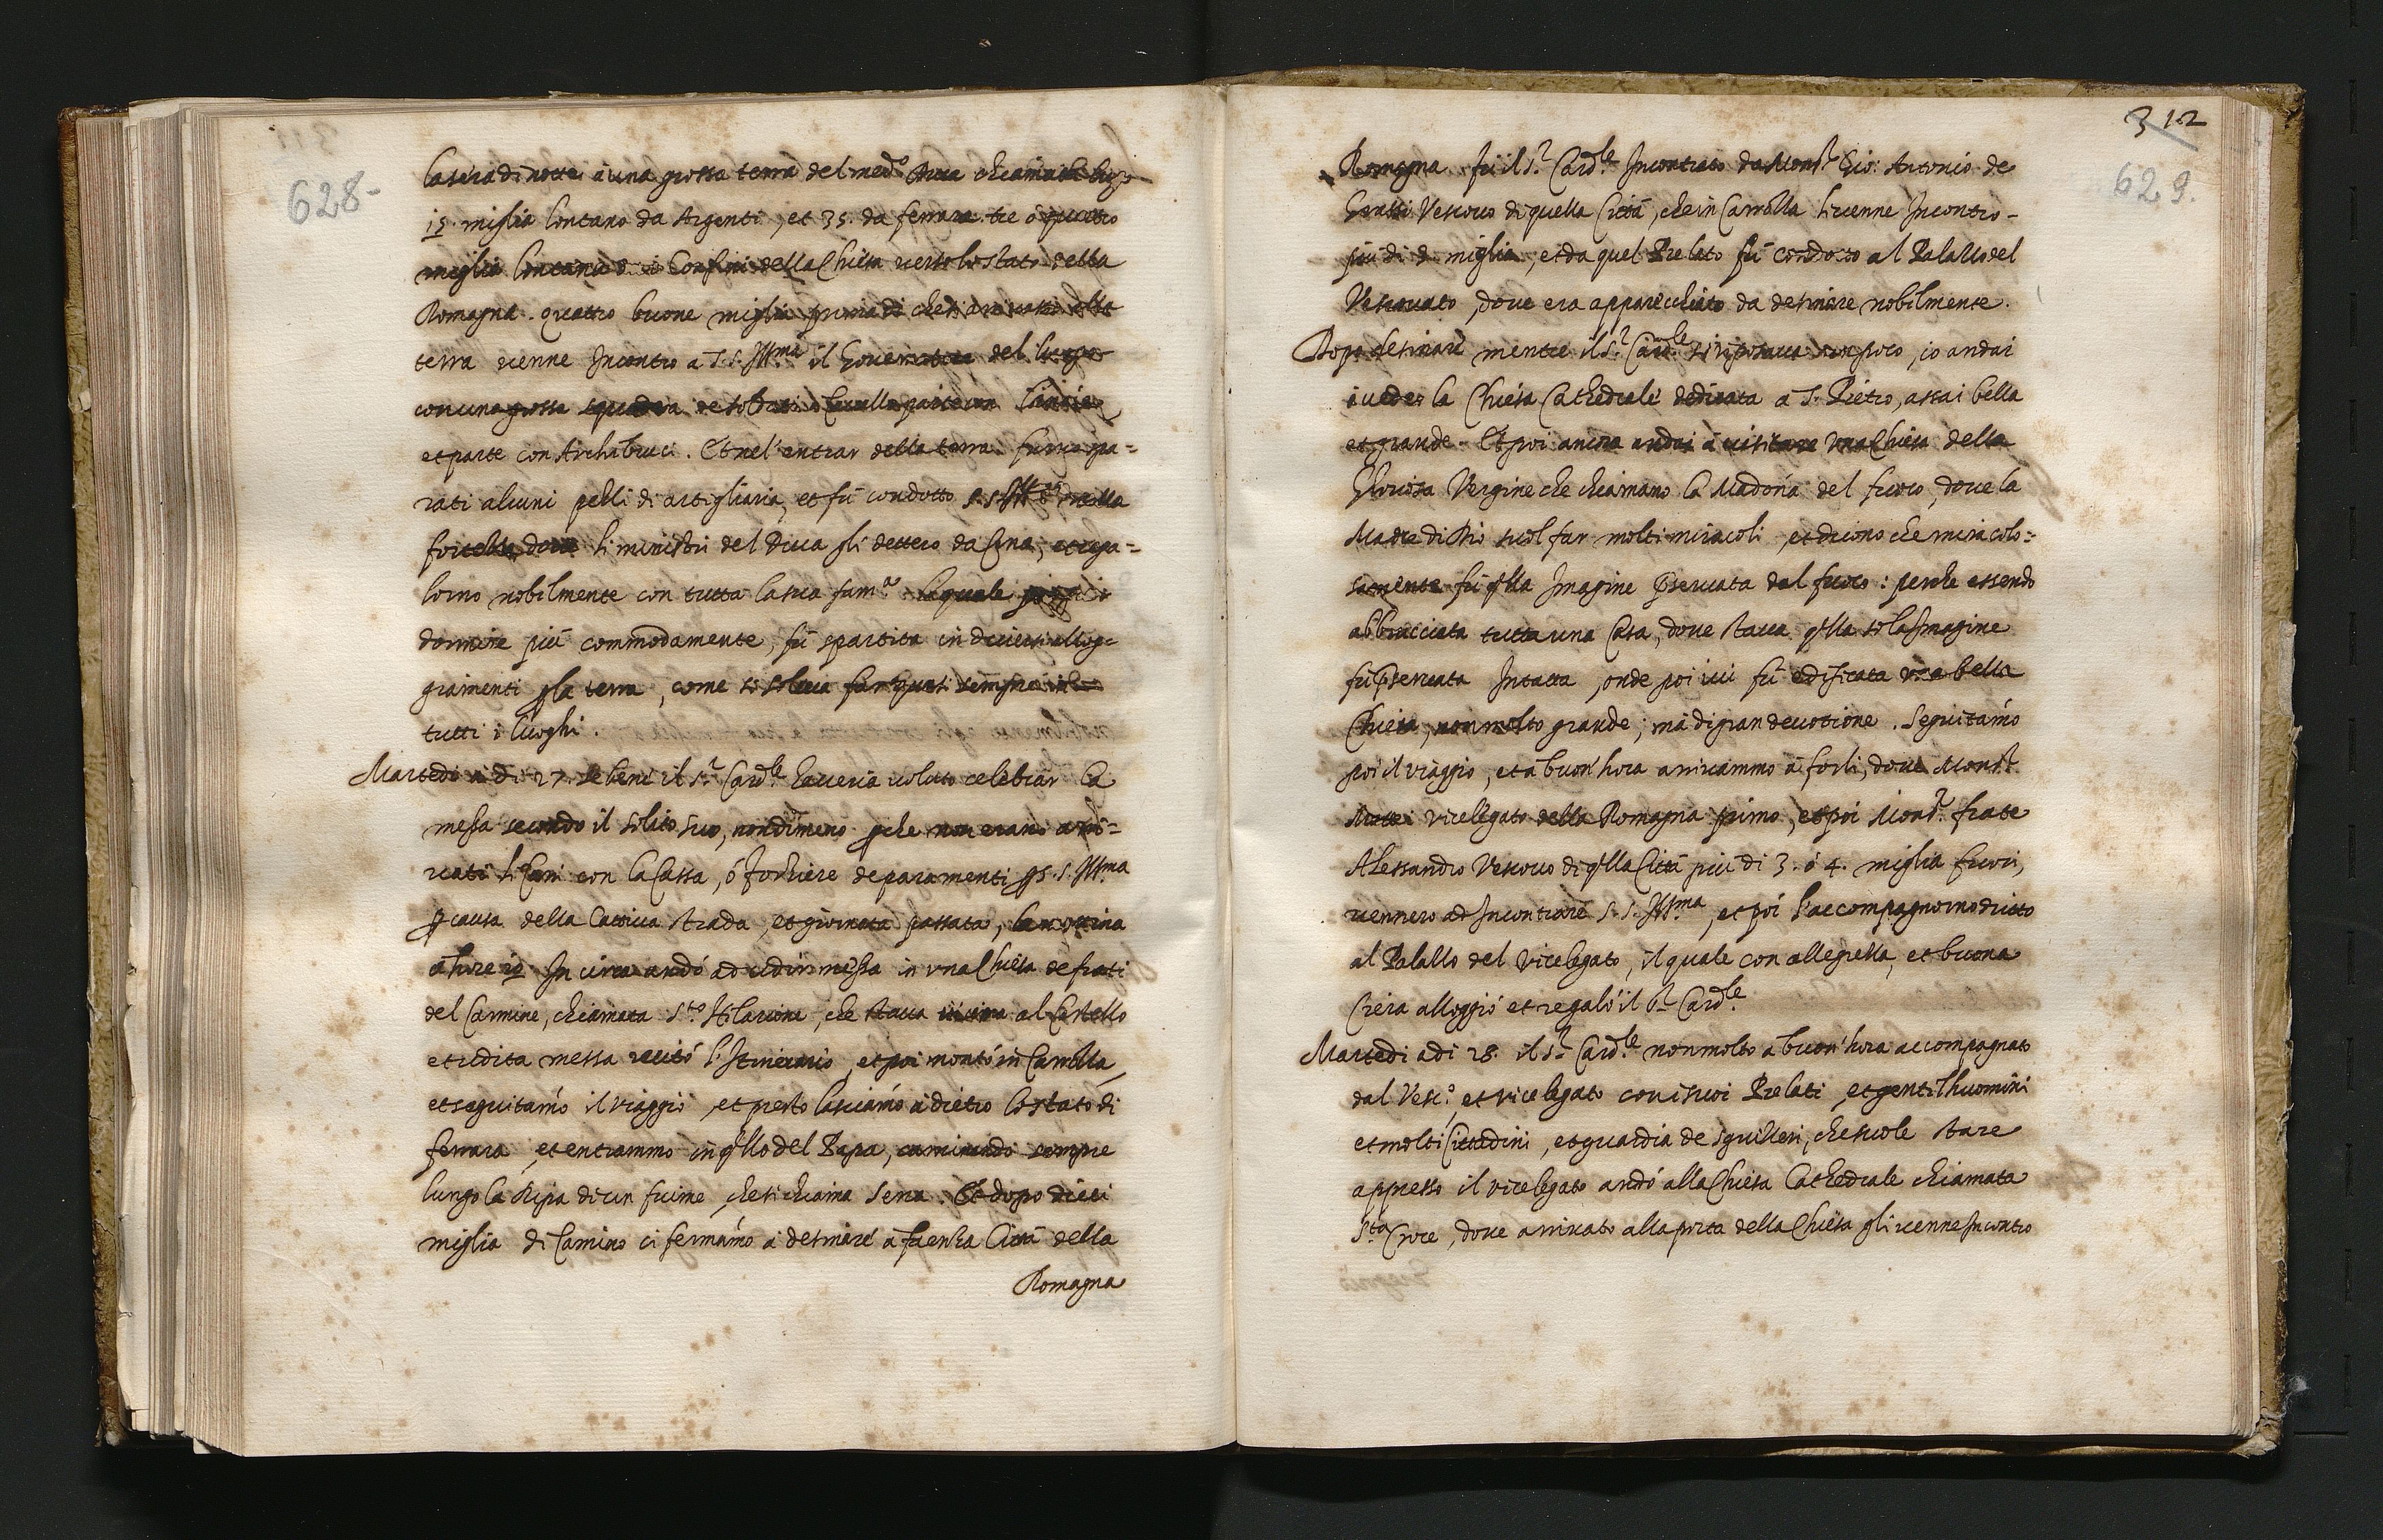 628-
la sera di notte à una grossa terra del med.º Duca chiamata Lugo
15. miglia lontano da Argenti, et 35. da ferrara tre ó quattro
miglia lontano d. i Confini della Chiesa verso lo stato della
Romagna. quattro buone miglia prima di che si arrivassi alla
terra venne Incontro a S. S. Ill.ma il Governatore del luogo
con una grossa squadra de soldati à Cavallo parte con lancie
et parte con Archibuci. Et nel' entrar della terra furno spa=
rati alcuni pezzi di artigliaria, et fú condotto S. S. Ill.ma nella
fortezza dove li ministri del Duca gli dettero da Cena, et rega=
lorno nobilmente con tutta la sua fam.ª la quale
dormire più commodamente, fú spartita in diversi allog=
giamenti p la terra, come si soleva far quasi sempre in
tutti i luoghi.
Martedi à di 27. se bene il S.r Card.le haveria voluto celebrar la
messa secondo il solito suo, nondimeno pche non erano arri=
vati li Cari con la Cassa, ó forziere de paramenti p S. S. Ill.ma
p causa della Cattiva strada, et giornata passata, la mattina
a hore 10 In circa andó ad udir messa in una Chiesa de frati
del Carmine, chiamata S.to Hilarione, che stava vicina al Castello
et udita messa recitó l'Itinerario, et poi montó in Carrozza
et seguitamo il viaggio, et presto lasciamo à dietro lo stato di
ferrara, et entrammo in qllo del Papa, caminando sempre
lungo la Ripa di un fiume, che si chiama Senn. Et dopo dieci
miglia di Camino ci fermamo à desinare à faenza Città della
Romagna
312
629.
Romagna fú il S.r Card.le Incontrato da Mons.r Gio: Antonio de
Grassi Vescovo di quella Città, che in Carrozza li venne Incontro
più di 2 miglia, et da quel Prelato fú condotto al Palazzo del
Vescovato, dove era apparecchiato da desinare nobilmente.
Dopo desinare mentre il S.r Card.le si riposava un poco, io andai
à veder la Chiesa Cathedrale dedicata a S. Pietro, assai bella
et grande. Et poi ancora andai à visitare una Chiesa della
Gloriosa Vergine che chiamano la Madona del fuoco, dove la
Madre di Dio suol far molti miracoli, et dicono che miracolo=
samente fú qlla Imagine pservata dal fuoco: perche essendo
abbrucciata tutta una Casa, dove stava qlla sola Imagine
fú pservata Intatta, onde poi ivi fú edificata una bella
Chiesa, non molto grande, ma di gran devotione. Seguitamo
poi il viaggio, et à buon' hora arrivammo à forli, dove Mons.r
Mattei vicelegato della Romagna primo, et poi Mons.r frate
Alessandro Vescovo di qlla Città più di 3. ó 4. miglia fuori,
vennero ad Incontrare S. S. Ill.ma, et poi l'accompagnorno dritto
al Palazzo del vicelegato, il quale con allegrezza, et buona
Ciera alloggió et regaló il S.r Card.le
Martedi adi 28. il S.r Card.le non molto a buon' hora accompagnato
dal Vesc.º et vicelegato con i suoi Prelati, et gentilhuomini
et molti Cittadini, et guardia de sguizzeri, che suole stare
appresso il vicelegato andó alla Chiesa Cathedrale chiamata
S.ta Croce, dove arrivato alla porta della Chiesa gli venne Incontro